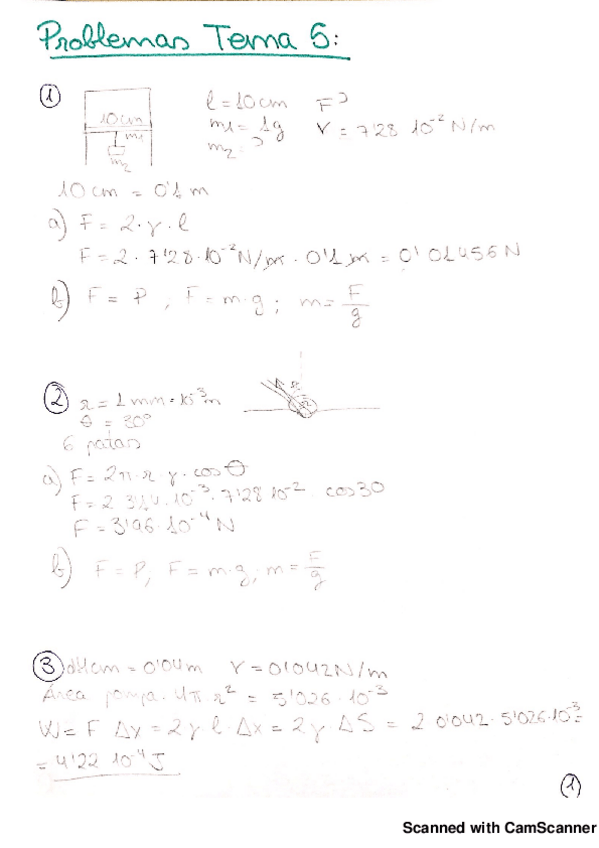 Problemas Tema 5:
①
10cm
m1
m2
l = 10cm F?
m1 = 1g γ = 7'28 10⁻² N/m
m2 = ?
10 cm = 0'1 m
a) F = 2·γ·l
F = 2 · 7'28·10⁻² N/m · 0'1 m = 0'01456 N
b) F = P , F = m·g ; m = F/g
② r = 1 mm = 10⁻³ m
θ = 30°
6 patas
a) F = 2π·r·γ·cos θ
F = 2 3'14·10⁻³· 7'28 10⁻² cos 30
F = 3'96·10⁻⁴ N
b) F = P, F = m·g; m = F/g
③ d=4cm = 0'04m γ = 0'042 N/m
Área pompa. 4π r² = 5'026·10⁻³
W = F Δx = 2γ·l·Δx = 2γ·ΔS = 2 0'042·5'026·10⁻³ =
= 4'22 10⁻⁴ J
(1)
Scanned with CamScanner